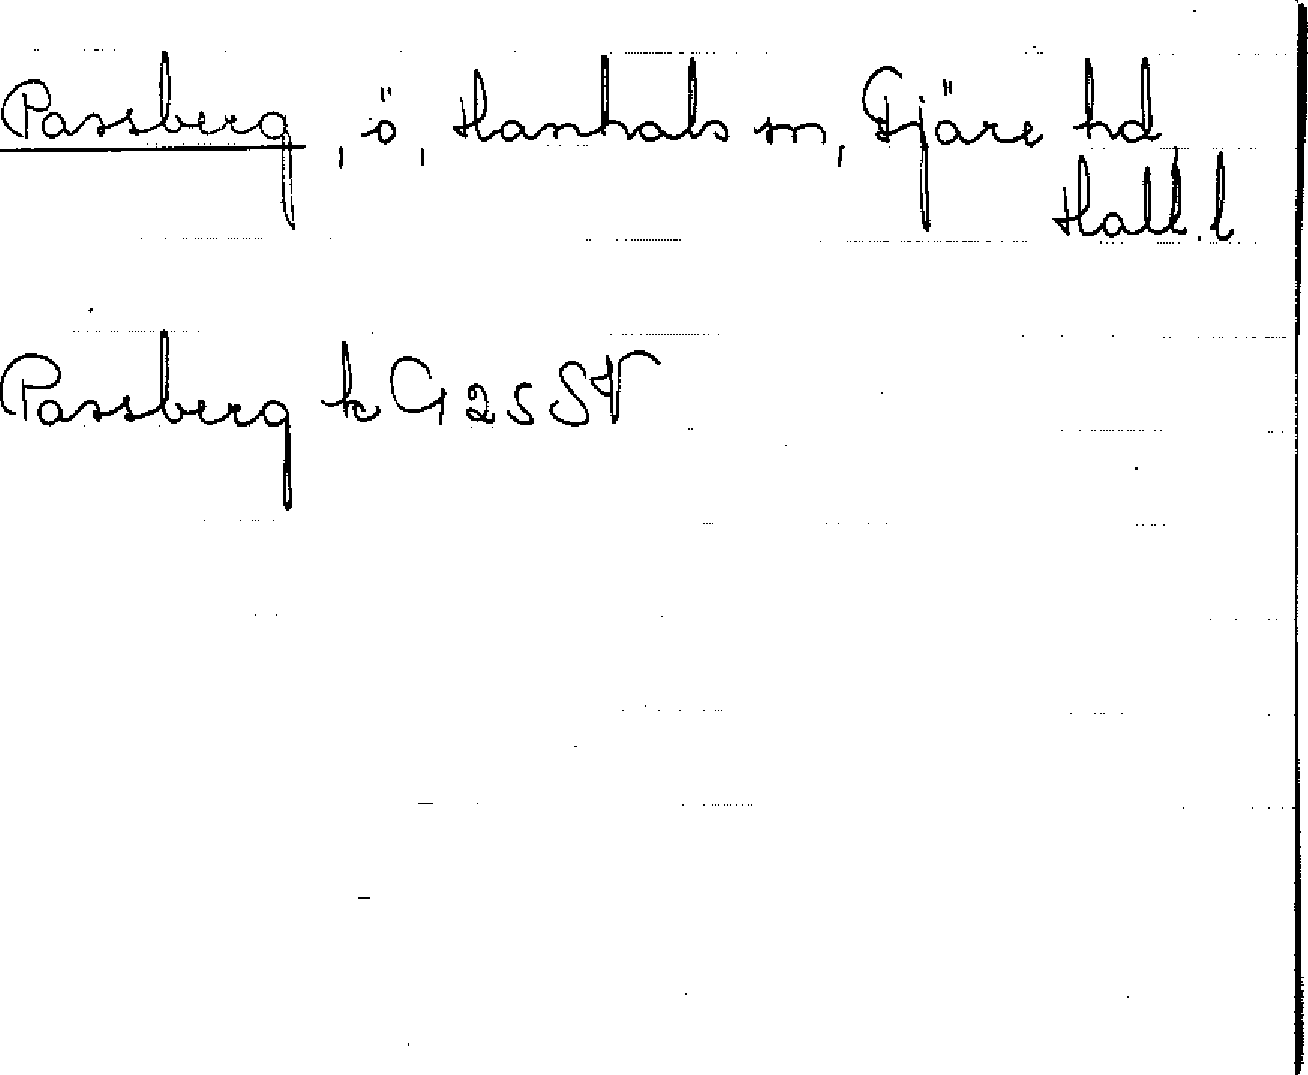 Passberg, ö, Hanhals sn, Fjäre hd
Hall. l
Passberg k G 25 SV